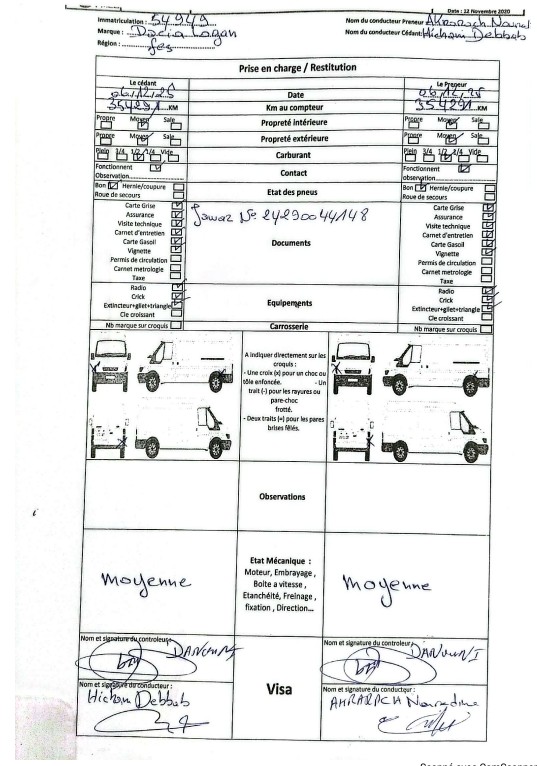 Date : 12 Novembre 2020
Immatriculation : 54949
Nom du conducteur Preneur
Marque : Dacia Logan
Nom du conducteur Cédant: Hicham Debbab
Région : fes
Prise en charge / Restitution
Le cédant
Le Preneur
06/12/25 Date 06/12/25
354291 KM Km au compteur 354291 KM
Propre Moyen Sale Propreté intérieure Propre Moyen Sale
Propre Moyen Sale Propreté extérieure Propre Moyen Sale
Plein 3/4 1/2 1/4 Vide Carburant Plein 3/4 1/2 1/4 Vide
Fonctionnent Contact Fonctionnent
Observation observation
Bon Hernie/coupure Etat des pneus Bon Hernie/coupure
Roue de secours Roue de secours
Carte Grise Jawaz N° 24290044148 Carte Grise
Assurance Assurance
Visite technique Visite technique
Carnet d'entretien Carnet d'entretien
Carte Gasoil Documents Carte Gasoil
Vignette Vignette
Permis de circulation Permis de circulation
Carnet metrologie Carnet metrologie
Taxe Taxe
Radio Radio
Crick Equipements Crick
Extincteur+gilet+triangle Extincteur+gilet+triangle
Cle croissant Cle croissant
Nb marque sur croquis Carrosserie Nb marque sur croquis
A indiquer directement sur les
croquis :
- Une croix (x) pour un choc ou
tôle enfoncée. - Un
trait (-) pour les rayures ou
pare-choc
frotté.
- Deux traits (=) pour les pares
brises fêlés.
Observations
Etat Mécanique :
Moteur, Embrayage ,
Boite a vitesse ,
Moyenne Etanchéité, Freinage , Moyenne
fixation , Direction...
Nom et signature du controleur: Nom et signature du controleur:
DANOUNI DANOUNI
Nom et signature du conducteur : Visa Nom et signature du conducteur :
Hicham Debbab